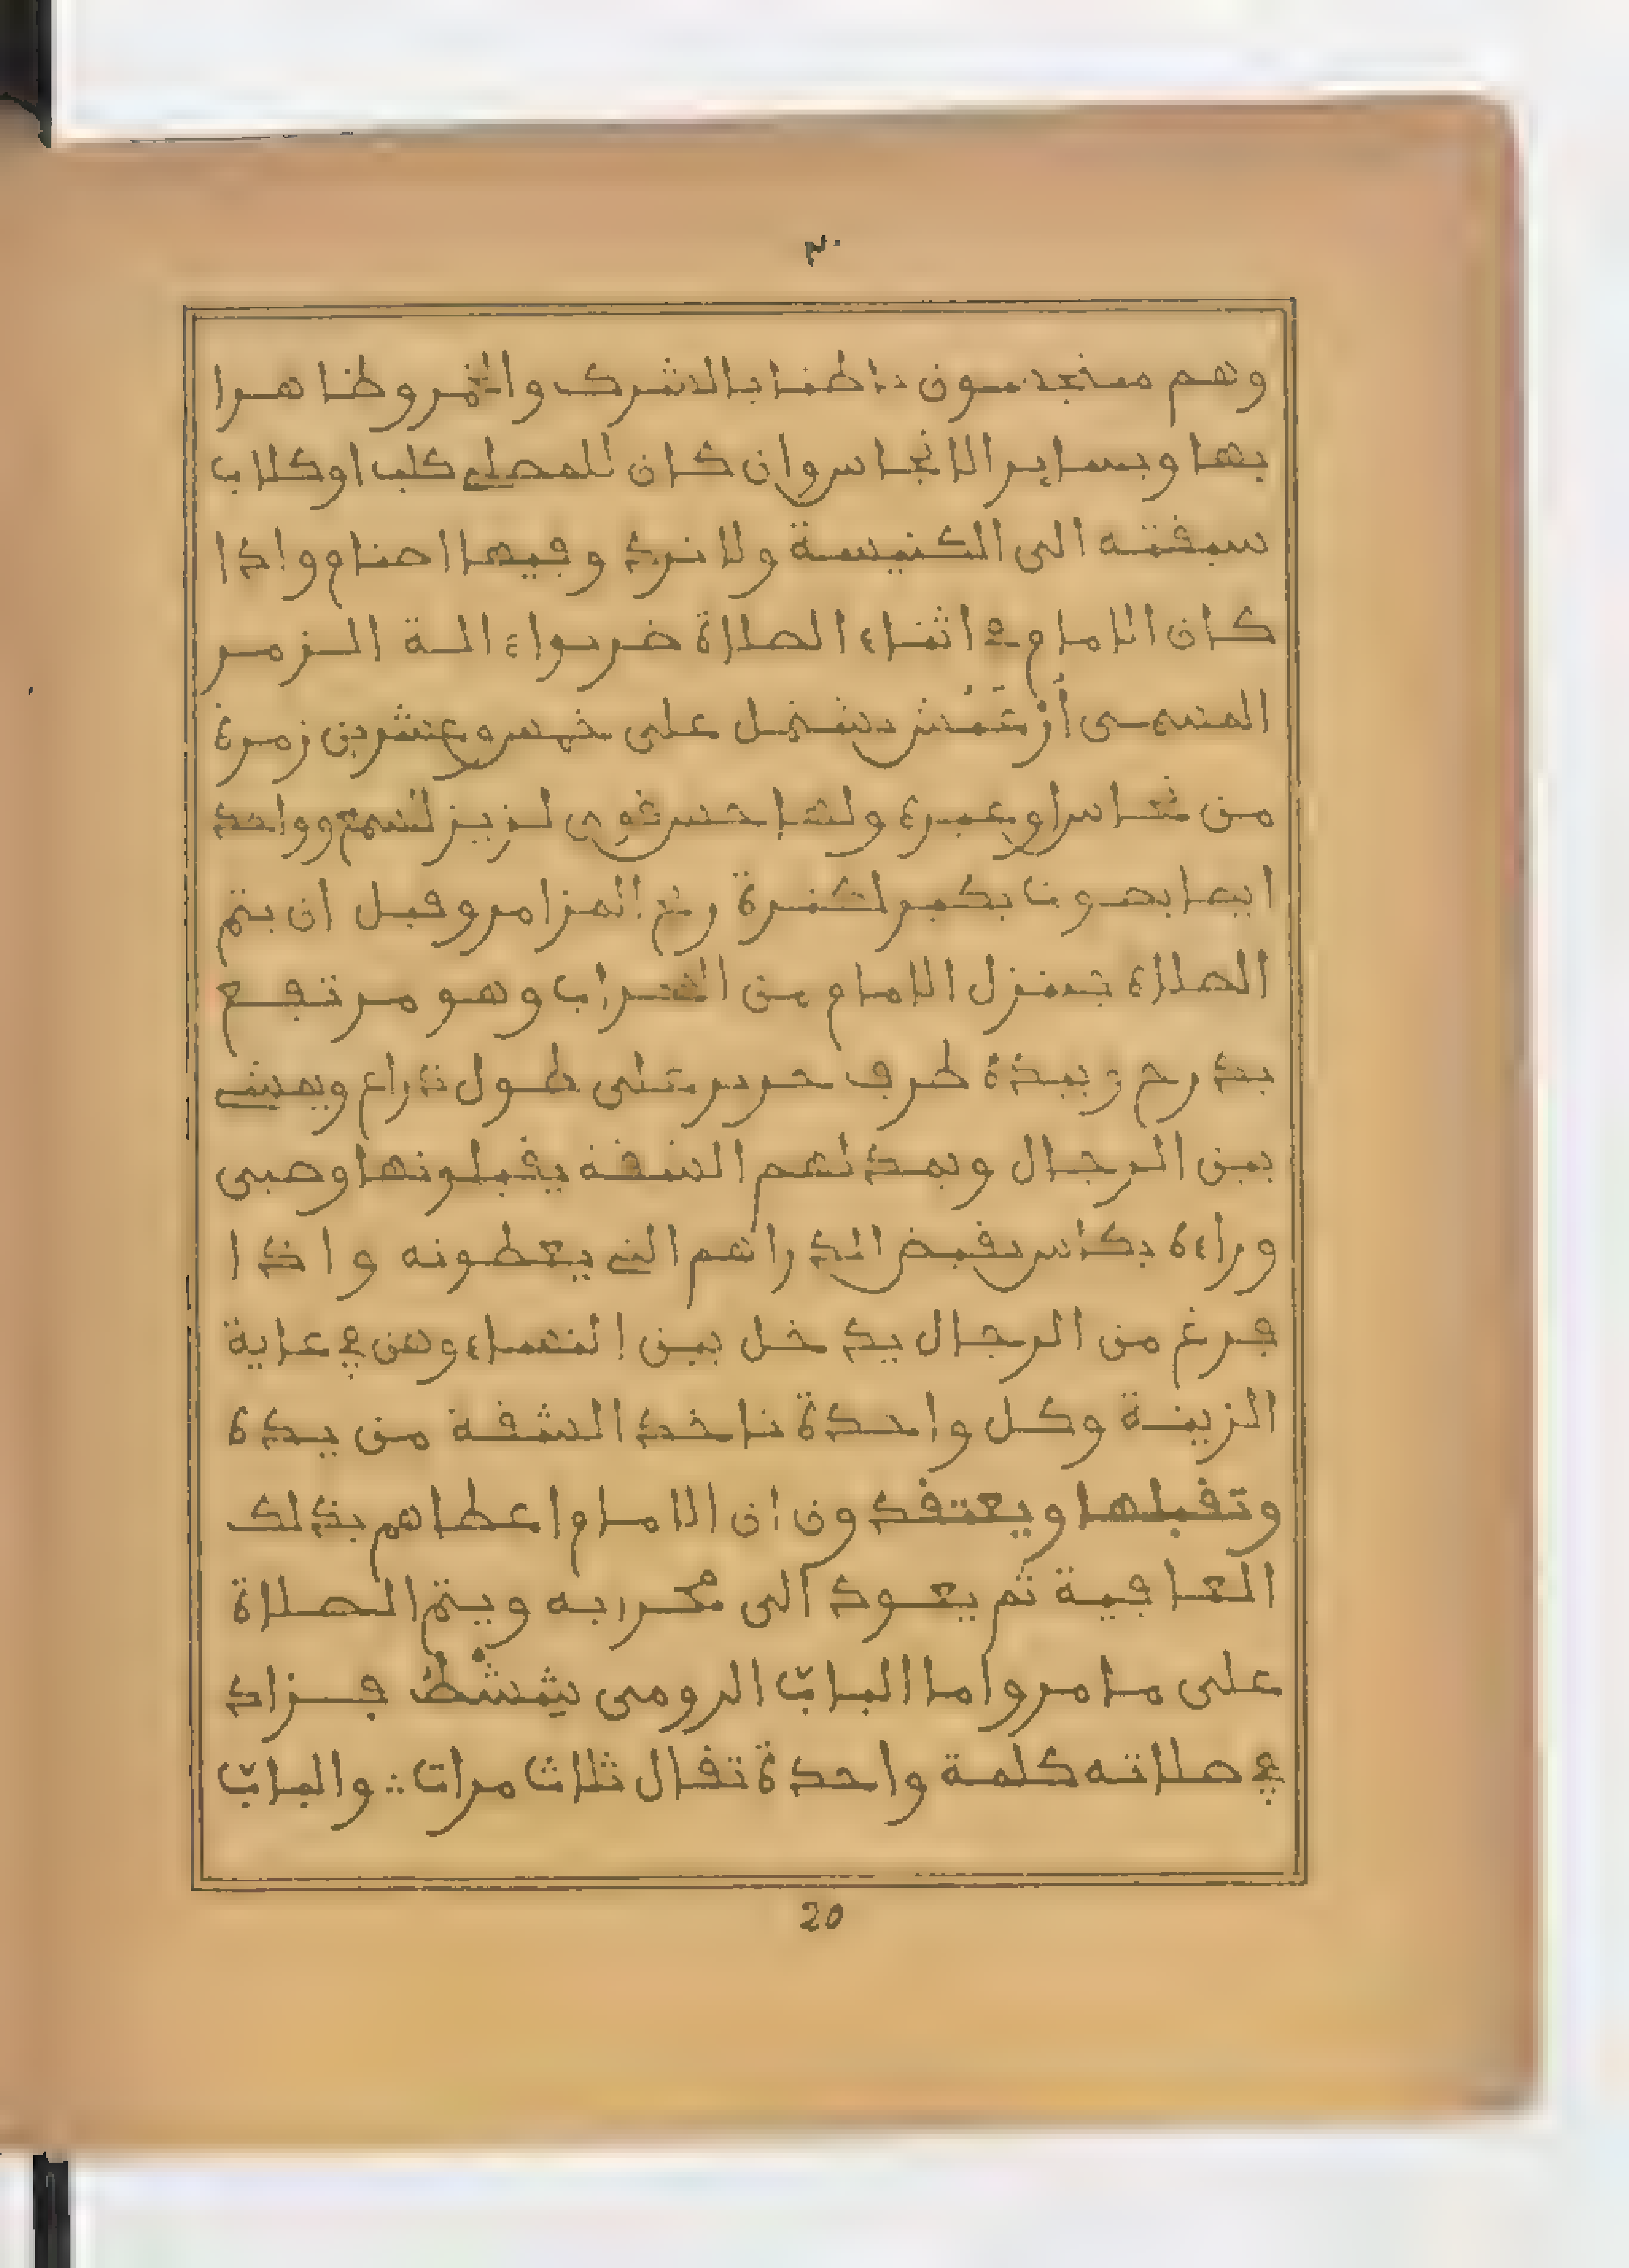 ٢٠
وهم متنجسون باطنا بالشرك والخمر وظاهرا
بها وبساير الانجاس وان كان للمصلي كلب او كلاب
سبقته الى الكنيسة ولا نرد وفيها اصنام واذا
كان الامام في اثناء الصلاة ضربوا ءالة الزمر
المسمى أرغنش يشتمل على خمس وعشرين زمرة
من نحاس او غيره ولها حس قوي لذيذ لسمع وواحد
ايها بصونا بكير لكثرة المزامر وقبل ان يتم
الصلاة ينزل الامام من المحراب وهو مرتفع
بدرج وبيده طرف حرير على طول ذراع ويمشي
بين الرجال ويمد لهم الشقة يقبلونها وصبي
وراءه بكاس يقبض الدراهم التي يعطونه واذا
فرغ من الرجال يدخل بين النساء وهن في غاية
الزينة وكل واحدة تاخد الشقة من يده
وتقبلها ويعتقدون ان الامام اعطاهم بذلك
العافية ثم يعود الى محرابه ويتم الصلاة
على ما مر واما الباب الرومى بيشط فزاد
في صلاته كلمة واحدة تقال ثلاث مرات ∴ والباب
20